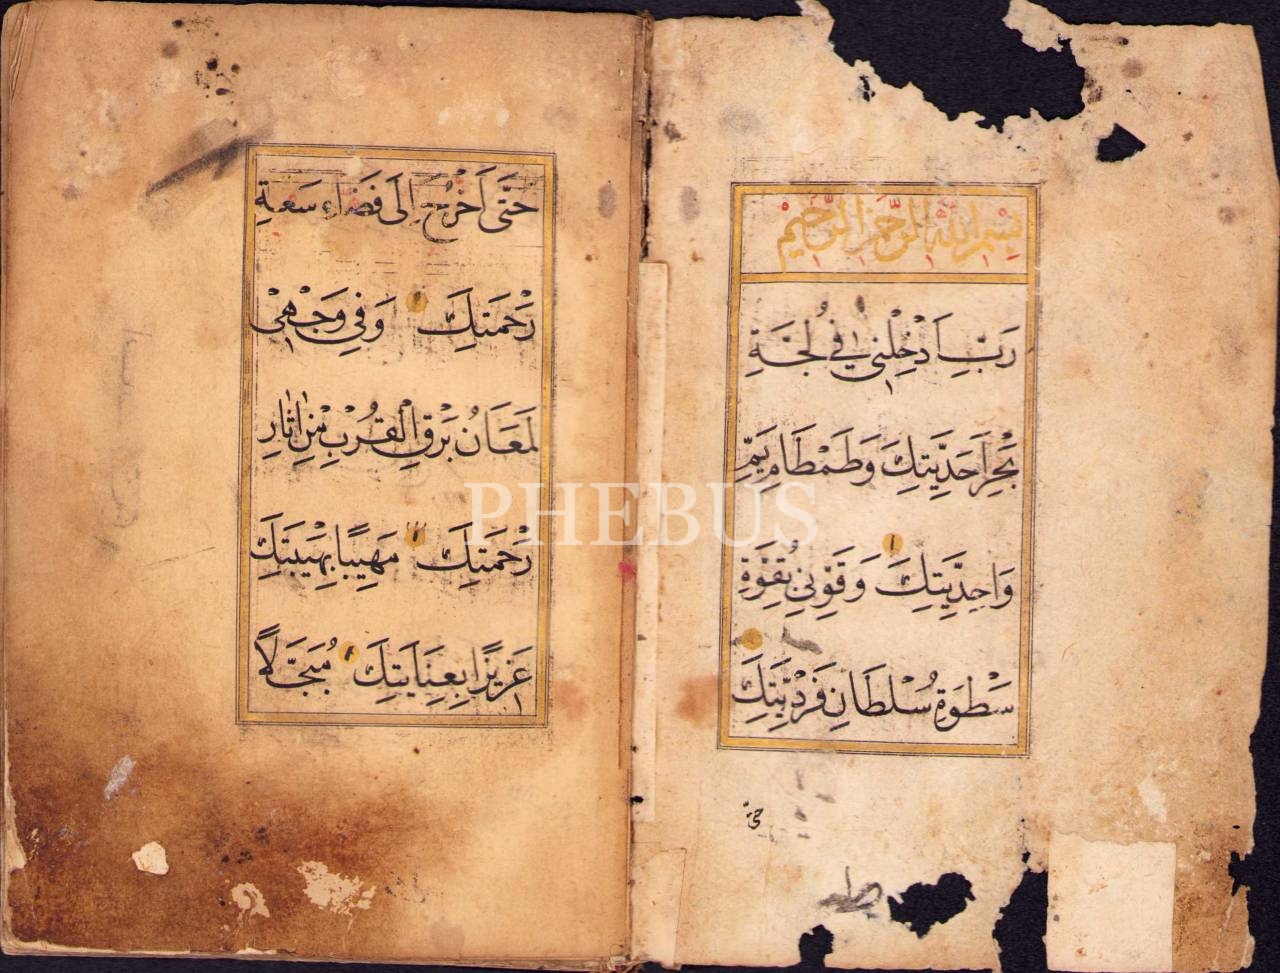 بِسْمِ اللّٰهِ الرَّحْمٰنِ الرَّحِيمِ
رَبِّ اَدْخِلْنِى فِى لُجَّةِ
بَحْرِ اَحَدِيَّتِكَ وَطَمْطَامِ يَمِّ
وَاحِدِيَّتِكَ وَقَوِّنِى بِقُوَّةِ
سَطْوَةِ سُلْطَانِ فَرْدِيَّتِكَ
حتّى
حَتّٰى اَخْرُجَ اِلٰى فَضَاءِ سَعَةِ
رَحْمَتِكَ وَفِى وَجْهِى
لَمَعَانُ بَرْقِ الْقُرْبِ مِنْ اٰثَارِ
رَحْمَتِكَ مَهِيبًا بِهَيْبَتِكَ
عَزِيزًا بِعِنَايَتِكَ مُبَجَّلًا
PHEBUS